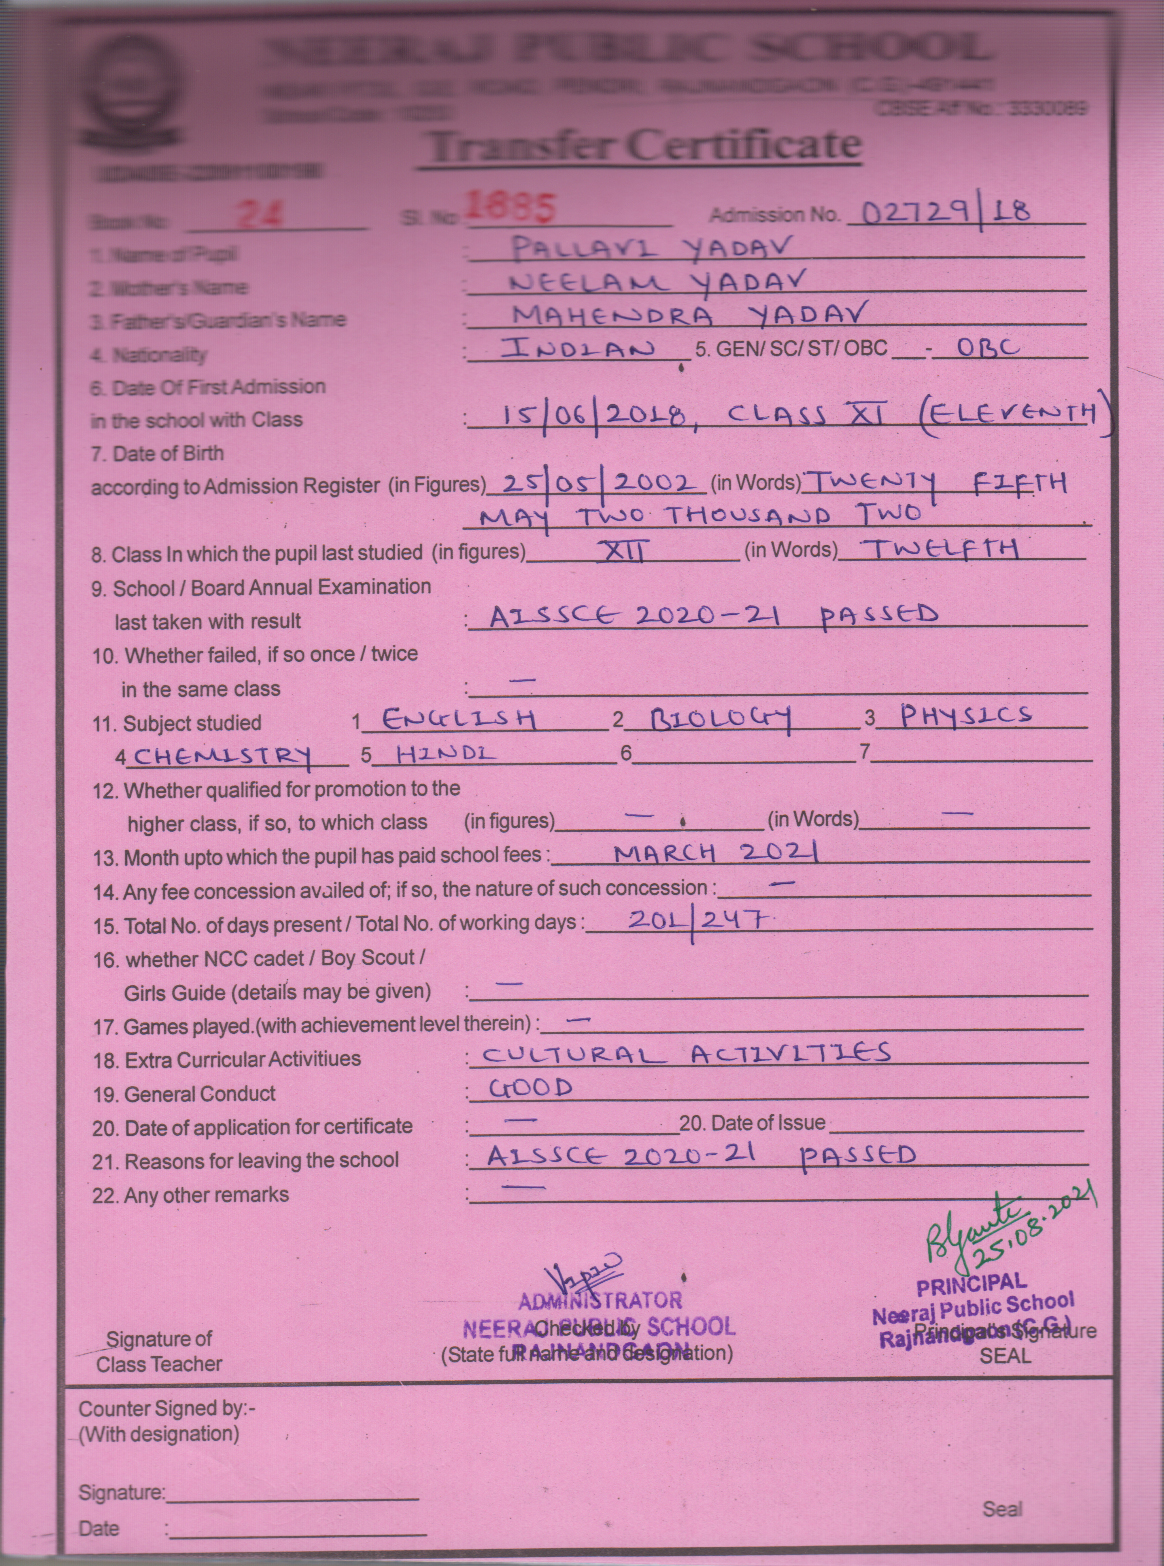 NEERAJ PUBLIC SCHOOL
RAJNANDGAON (C.G.)-491441
CBSE Aff No.: 3330089
Transfer Certificate
Book No 24 Sl. No 1885 Admission No. 02729/18
1. Name of Pupil : PALLAVI YADAV
2. Mother's Name : NEELAM YADAV
3. Father's/Guardian's Name : MAHENDRA YADAV
4. Nationality : INDIAN 5. GEN/ SC/ ST/ OBC - OBC
6. Date Of First Admission
in the school with Class : 15/06/2018, CLASS XI (ELEVENTH)
7. Date of Birth
according to Admission Register (in Figures) 25/05/2002 (in Words) TWENTY FIFTH
MAY TWO THOUSAND TWO
8. Class In which the pupil last studied (in figures) XII (in Words) TWELFTH
9. School / Board Annual Examination
last taken with result : AISSCE 2020-21 PASSED
10. Whether failed, if so once / twice
in the same class : —
11. Subject studied 1 ENGLISH 2 BIOLOGY 3 PHYSICS
4 CHEMISTRY 5 HINDI 6 7
12. Whether qualified for promotion to the
higher class, if so, to which class (in figures) — (in Words) —
13. Month upto which the pupil has paid school fees : MARCH 2021
14. Any fee concession availed of; if so, the nature of such concession : —
15. Total No. of days present / Total No. of working days : 201/247
16. whether NCC cadet / Boy Scout /
Girls Guide (details may be given) : —
17. Games played.(with achievement level therein) : —
18. Extra Curricular Activitiues : CULTURAL ACTIVITIES
19. General Conduct : GOOD
20. Date of application for certificate : — 20. Date of Issue
21. Reasons for leaving the school : AISSCE 2020-21 PASSED
22. Any other remarks : —
25.08.2021
ADMINISTRATOR
NEERAJ PUBLIC SCHOOL
RAJNANDGAON
PRINCIPAL
Neeraj Public School
Rajnandgaon (C.G.)
Signature of
Class Teacher
Checked by
(State full name and designation)
Principal's Signature
SEAL
Counter Signed by:-
(With designation)
Signature:
Date :
Seal